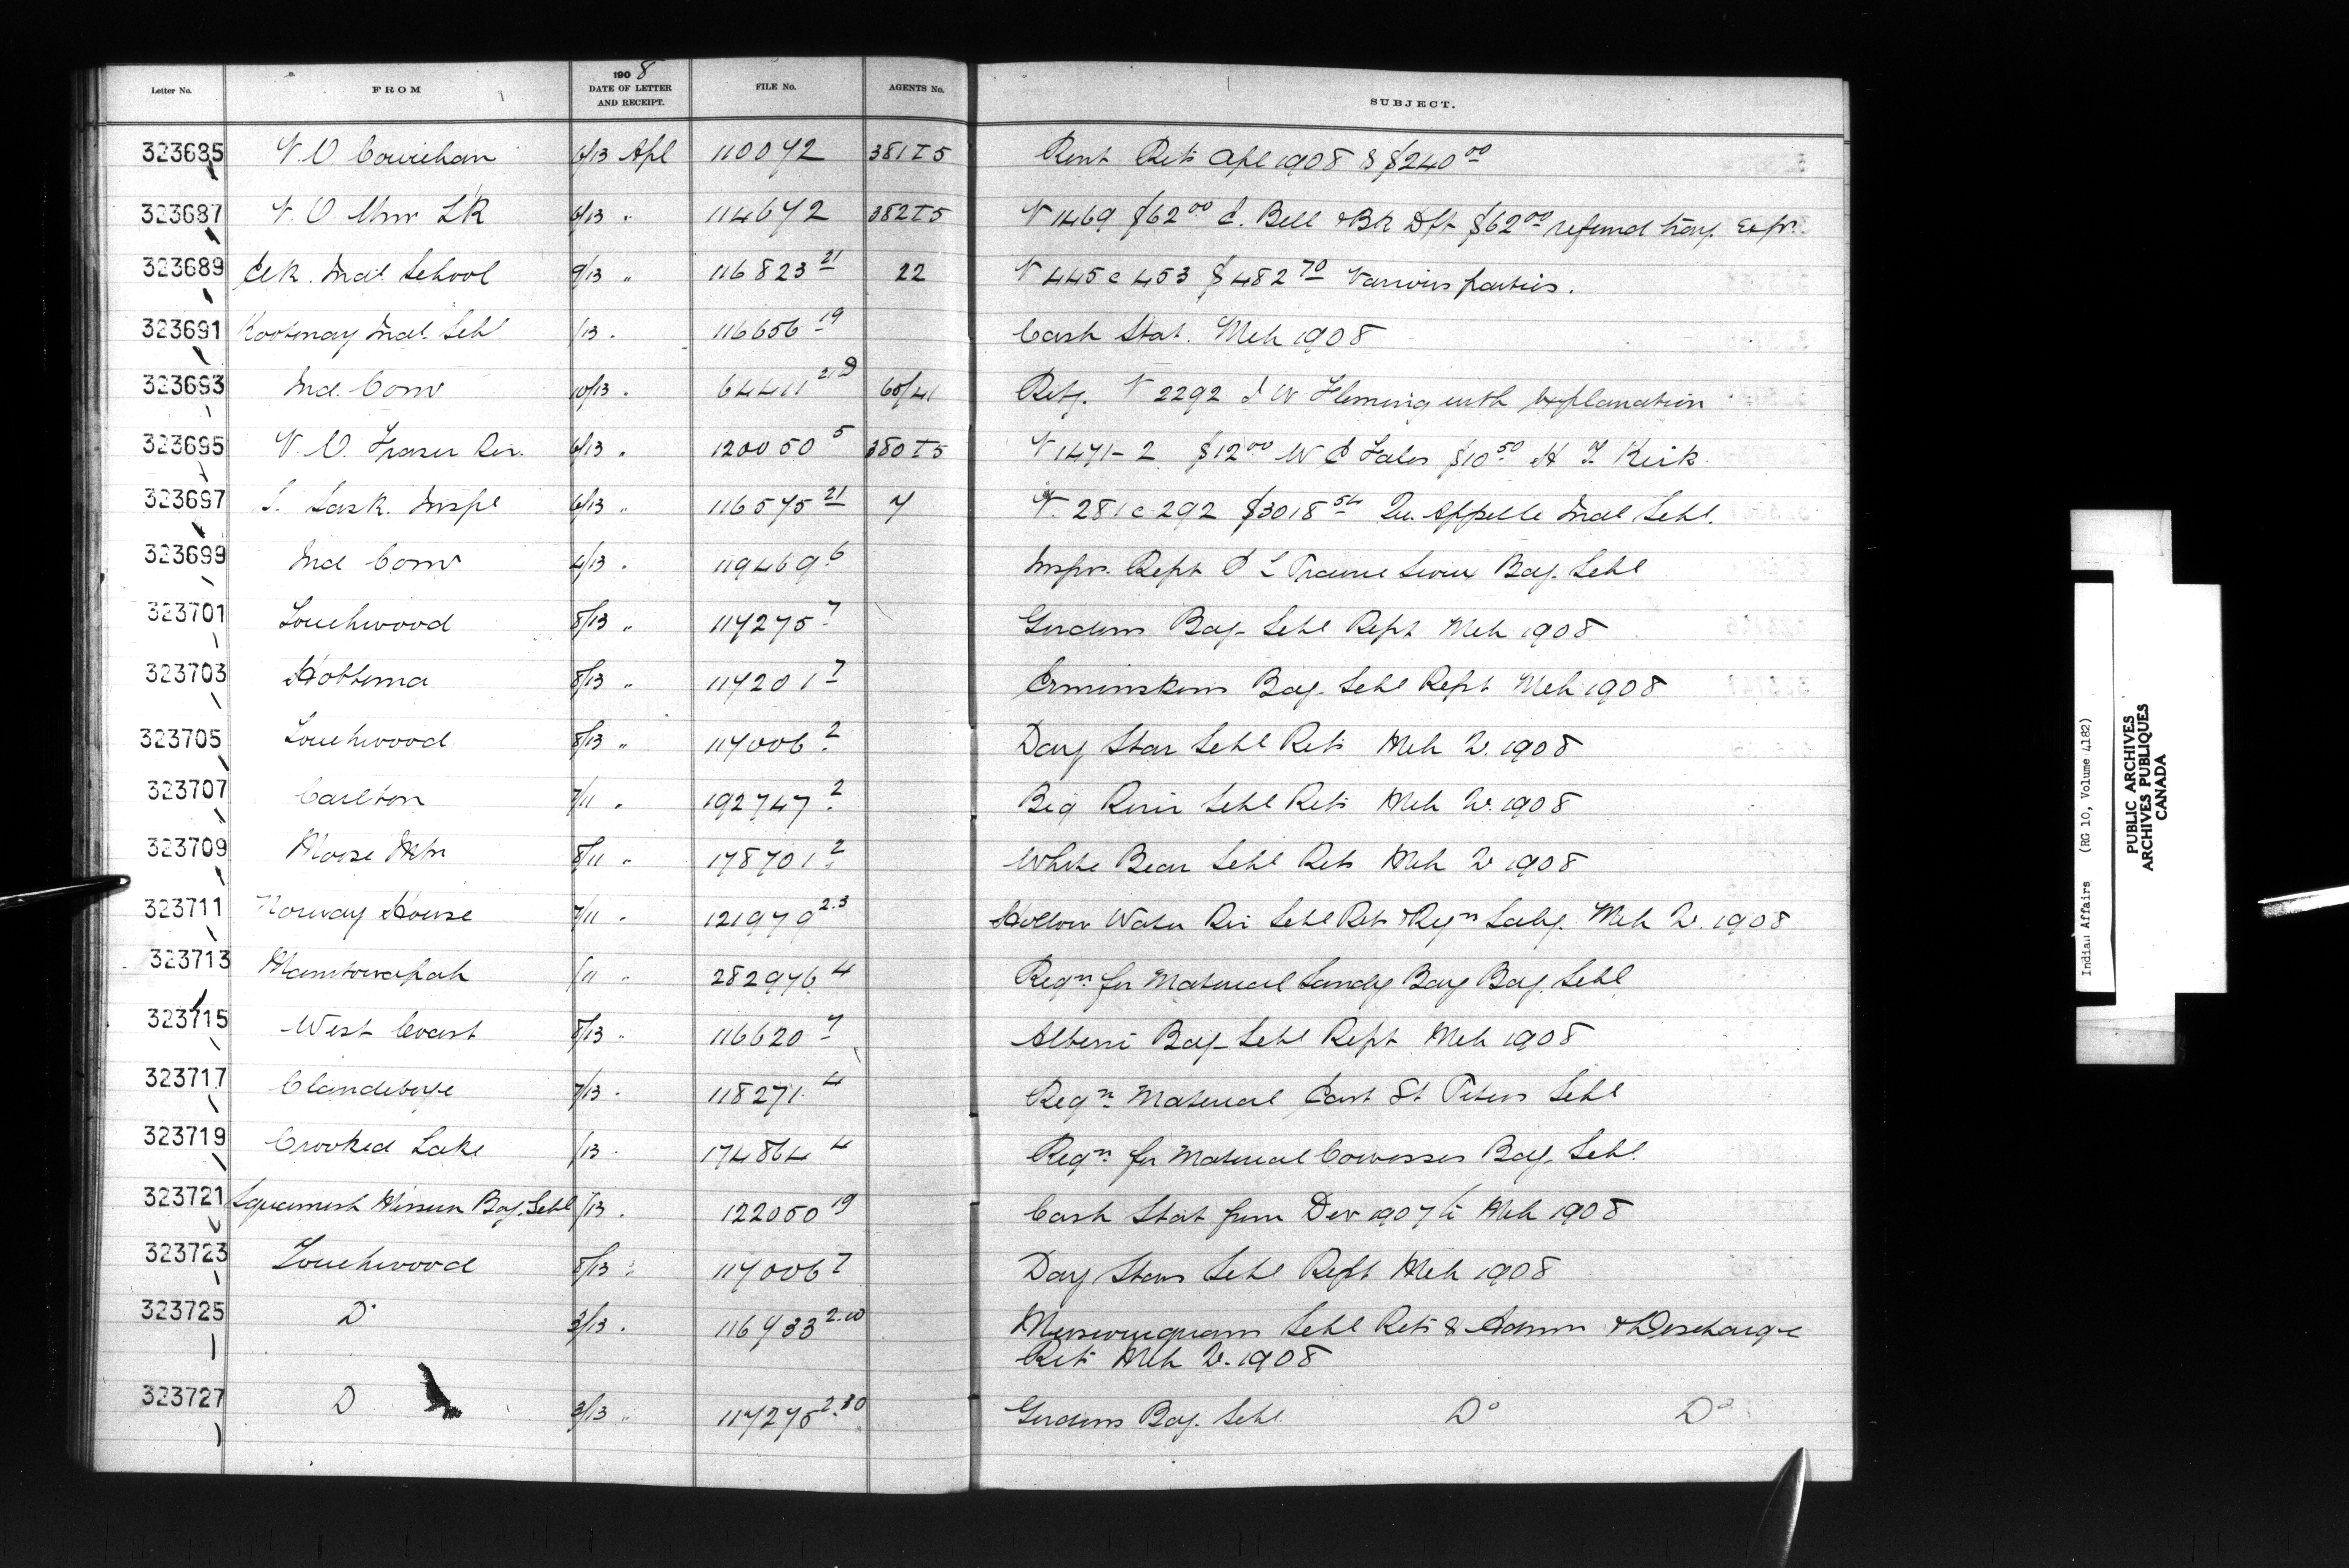 Letter No. FROM 1908 DATE OF LETTER AND RECEIPT. FILE No. AGENTS No. SUBJECT.
323685 V.O Cowichan 6/13 Apl 110072 381 I 5 Rent Rets Apl 1908 & $240 00
323687 V.O 6/13 " 114672 382 I 5 V 1469 $62 00 C. Bell & Bk Dft $62 00 refund trav. Exps.
323689 Elk. Indl School 9/13 " 116823 21 22 V 445 @ 453 $482 70 Various parties.
323691 Kootenay Indl Schl /13 . 116656 19 Cash Stat. Mch 1908
323693 Ind. Comr 10/13 . 64411 21D 60/41 Retg. V 2292 J W Fleming with explanation
323695 V.O. Fraser Riv. 6/13 . 120050 5 380 I 5 V 1471-2 $12 00 W E $10 50 H T. Kirk
323697 S. Sask. Inspl 6/13 " 116575 21 7 V. 281 @ 292 $3018 54 Qu. Appelle Indl Schl.
323699 Ind Comr 4/13 . 119469 6 Inspn. Rept Sioux Bdg. Schl
323701 Touchwood 8/13 " 117275 7 Gordons Bdg. Schl Rept Mch 1908
323703 Hobbema 8/13 " 117201 7 Ermineskins Bdg. Schl Rept Mch 1908
323705 Touchwood 8/13 " 117006 2 Day Star Schl Rets Mch Q. 1908
323707 Carlton 7/11 . 192747 2 Big River Schl Rets Mch Q. 1908
323709 Moose Mtn 8/11 " 178701 2 White Bear Schl Rets Mch Q 1908
323711 Norway House 7/11 . 121979 2.3 Hollow Water Riv Schl Rets & Reqn Saly. Mch Q. 1908
323713 Manitowapah /11 " 282976 4 Reqn for Material Sandy Bay Bdg. Schl
323715 West Coast 8/13 " 116620 7 Alberni Bdg. Schl Rept Mch 1908
323717 Clandeboye 7/13 . 118271 4 Reqn Material East St Peters Schl
323719 Crooked Lake /13 . 174864 4 Reqn for Material Cowesses Bdg. Schl.
323721 Squamish Mission Bdg. Schl /13 . 122050 19 Cash Stat from Dec 1907 to Mch 1908
323723 Touchwood 8/13 " 117006 7 Day Stars Schl Rept Mch 1908
323725 Do 3/13 . 116733 2.10 Muscowequans Schl Rets & Admn & Discharge
Rets Mch Q. 1908
323727 D 3/13 " 117275 2.10 Gordons Bdg. Schl Do Do
Indian Affairs (RG 10, Volume 4182)
PUBLIC ARCHIVES
ARCHIVES PUBLIQUES
CANADA